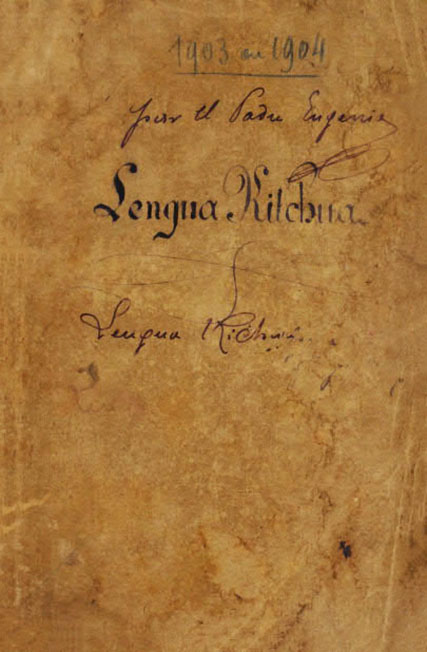 1903 ou 1904
por el Padre Eugenio
Lengua Kitchua.
Lengua Kichua.